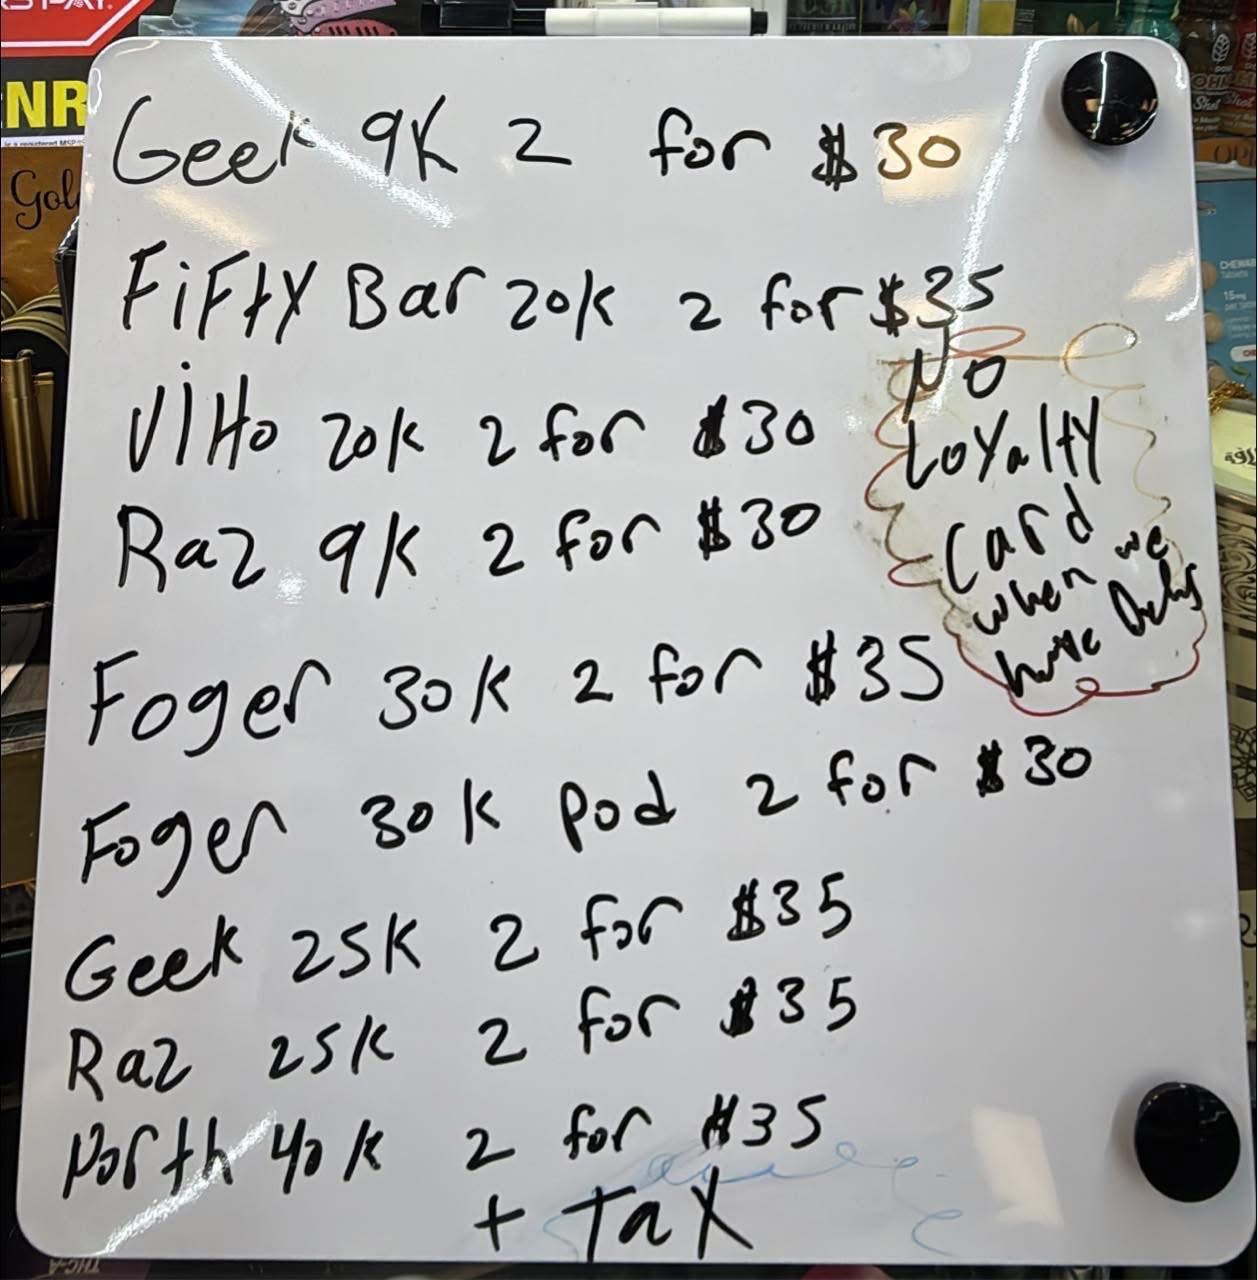 Geek 9K 2 for $30
FiFty Bar 20K 2 for $35
ViHo 20K 2 for $30
Raz 9K 2 for $30
No
Loyalty
Card
when we
have Deals
Foger 30K 2 for $35
Foger 30K Pod 2 for $30
Geek 25K 2 for $35
Raz 25K 2 for $35
North 40K 2 for $35
+ Tax
NR
Gol
THC-A